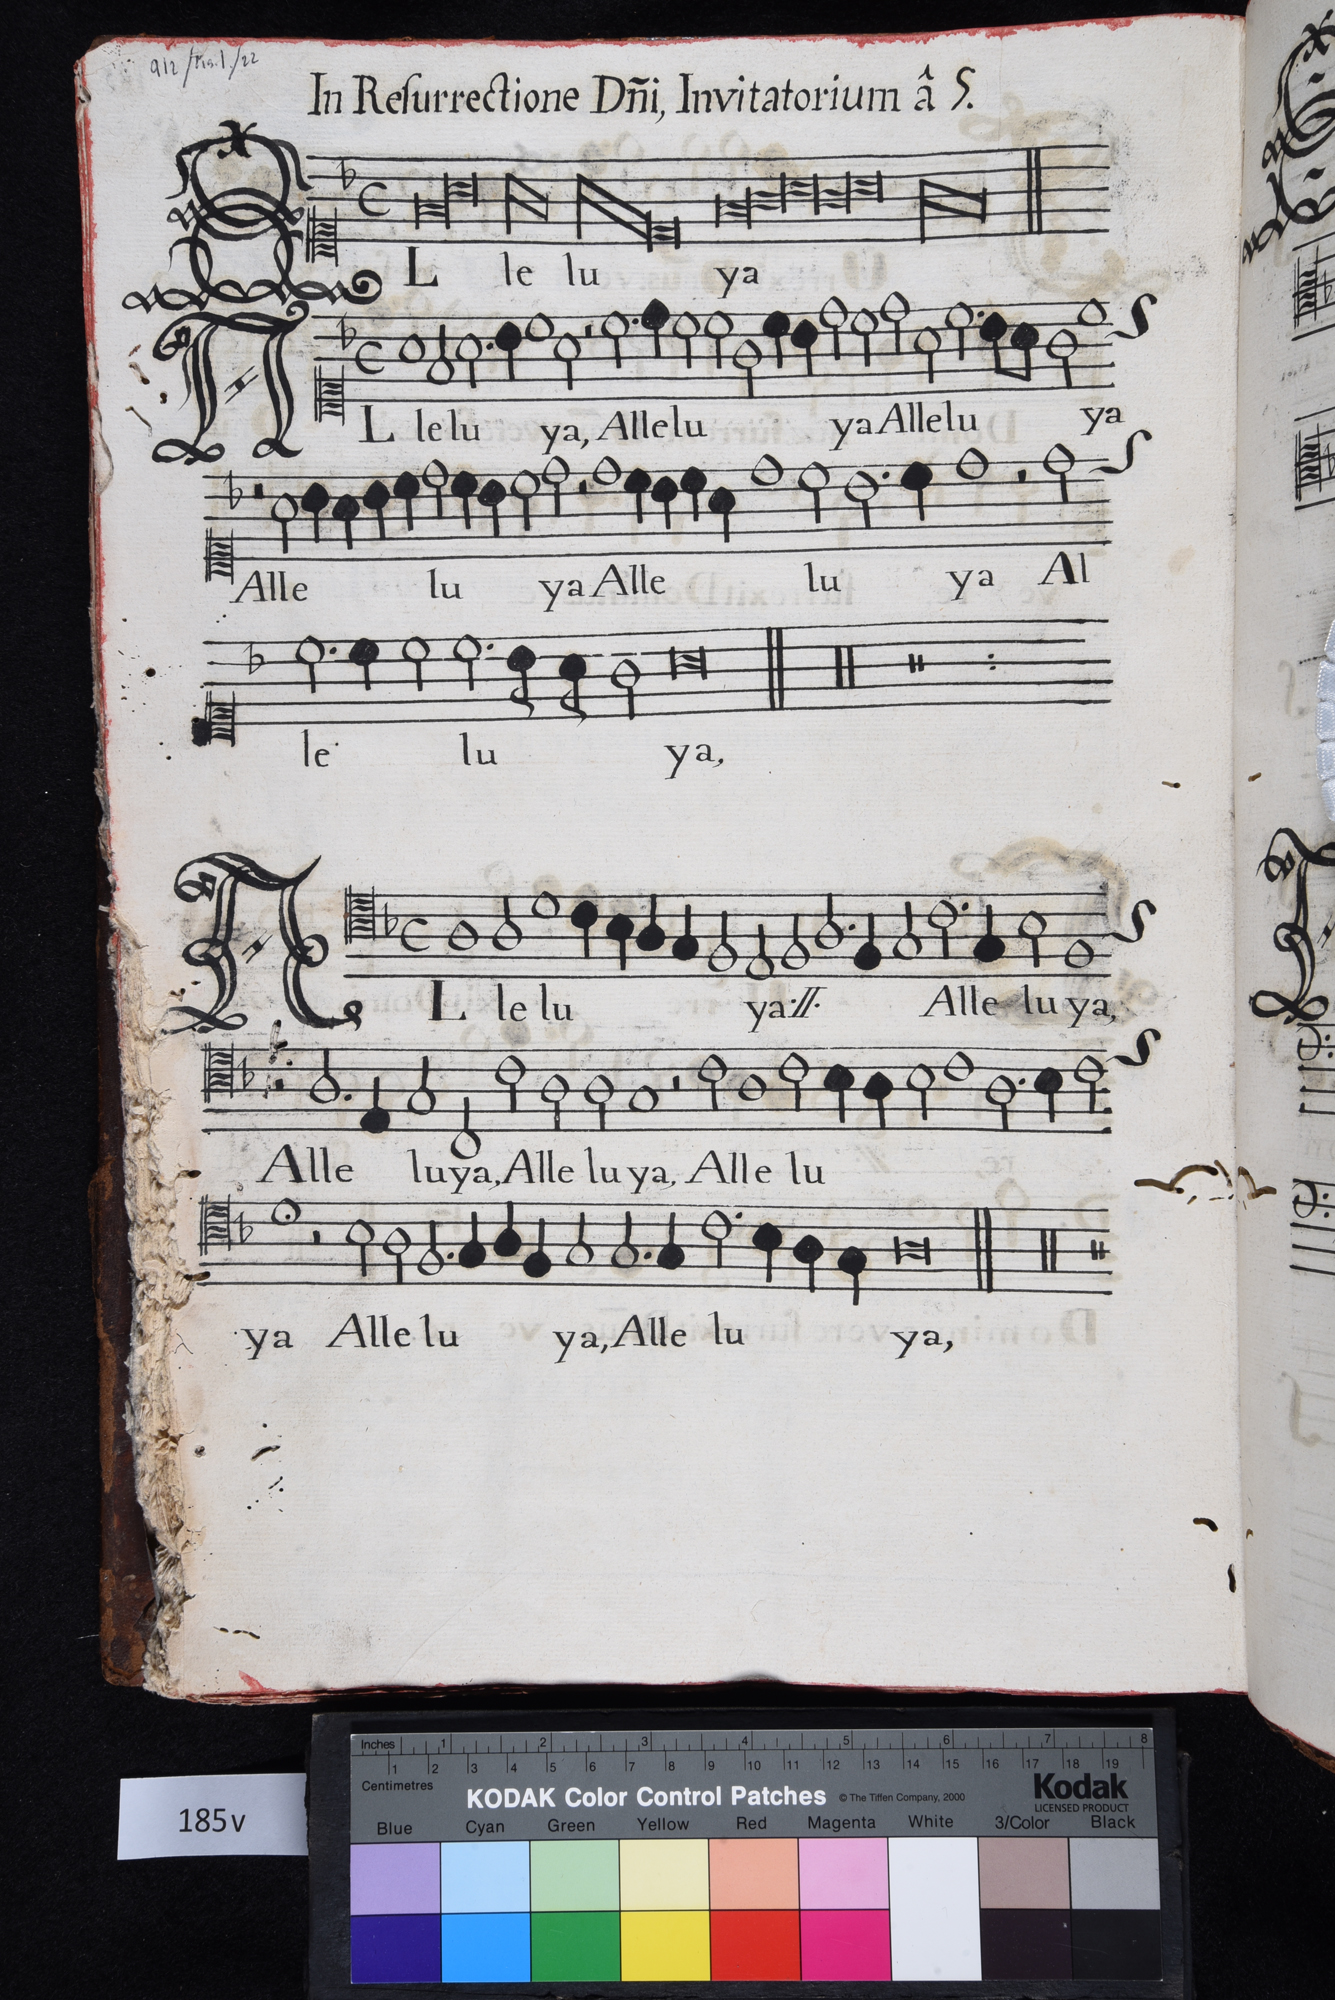 912/fis.1./22
In Resurrectione Dñi, Invitatorium â 5.
L le lu ya
A L le lu ya, Alle lu ya Alle lu ya
Alle lu ya Alle lu ya Al
le lu ya,
A L le lu ya :||: Alle lu ya,
Alle lu ya, Alle lu ya, Alle lu
ya Alle lu ya, Alle lu ya,
185v
Inches 1 2 3 4 5 6 7 8
Centimetres 1 2 3 4 5 6 7 8 9 10 11 12 13 14 15 16 17 18 19
KODAK Color Control Patches © The Tiffen Company, 2000 Kodak
LICENSED PRODUCT
Blue Cyan Green Yellow Red Magenta White 3/Color Black